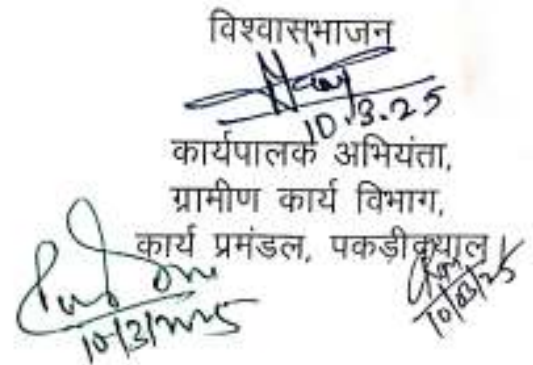 विश्वासभाजन
10.3.25
कार्यपालक अभियंता,
ग्रामीण कार्य विभाग,
कार्य प्रमंडल, पकड़ीदयाल
10/3/2025
10/03/25